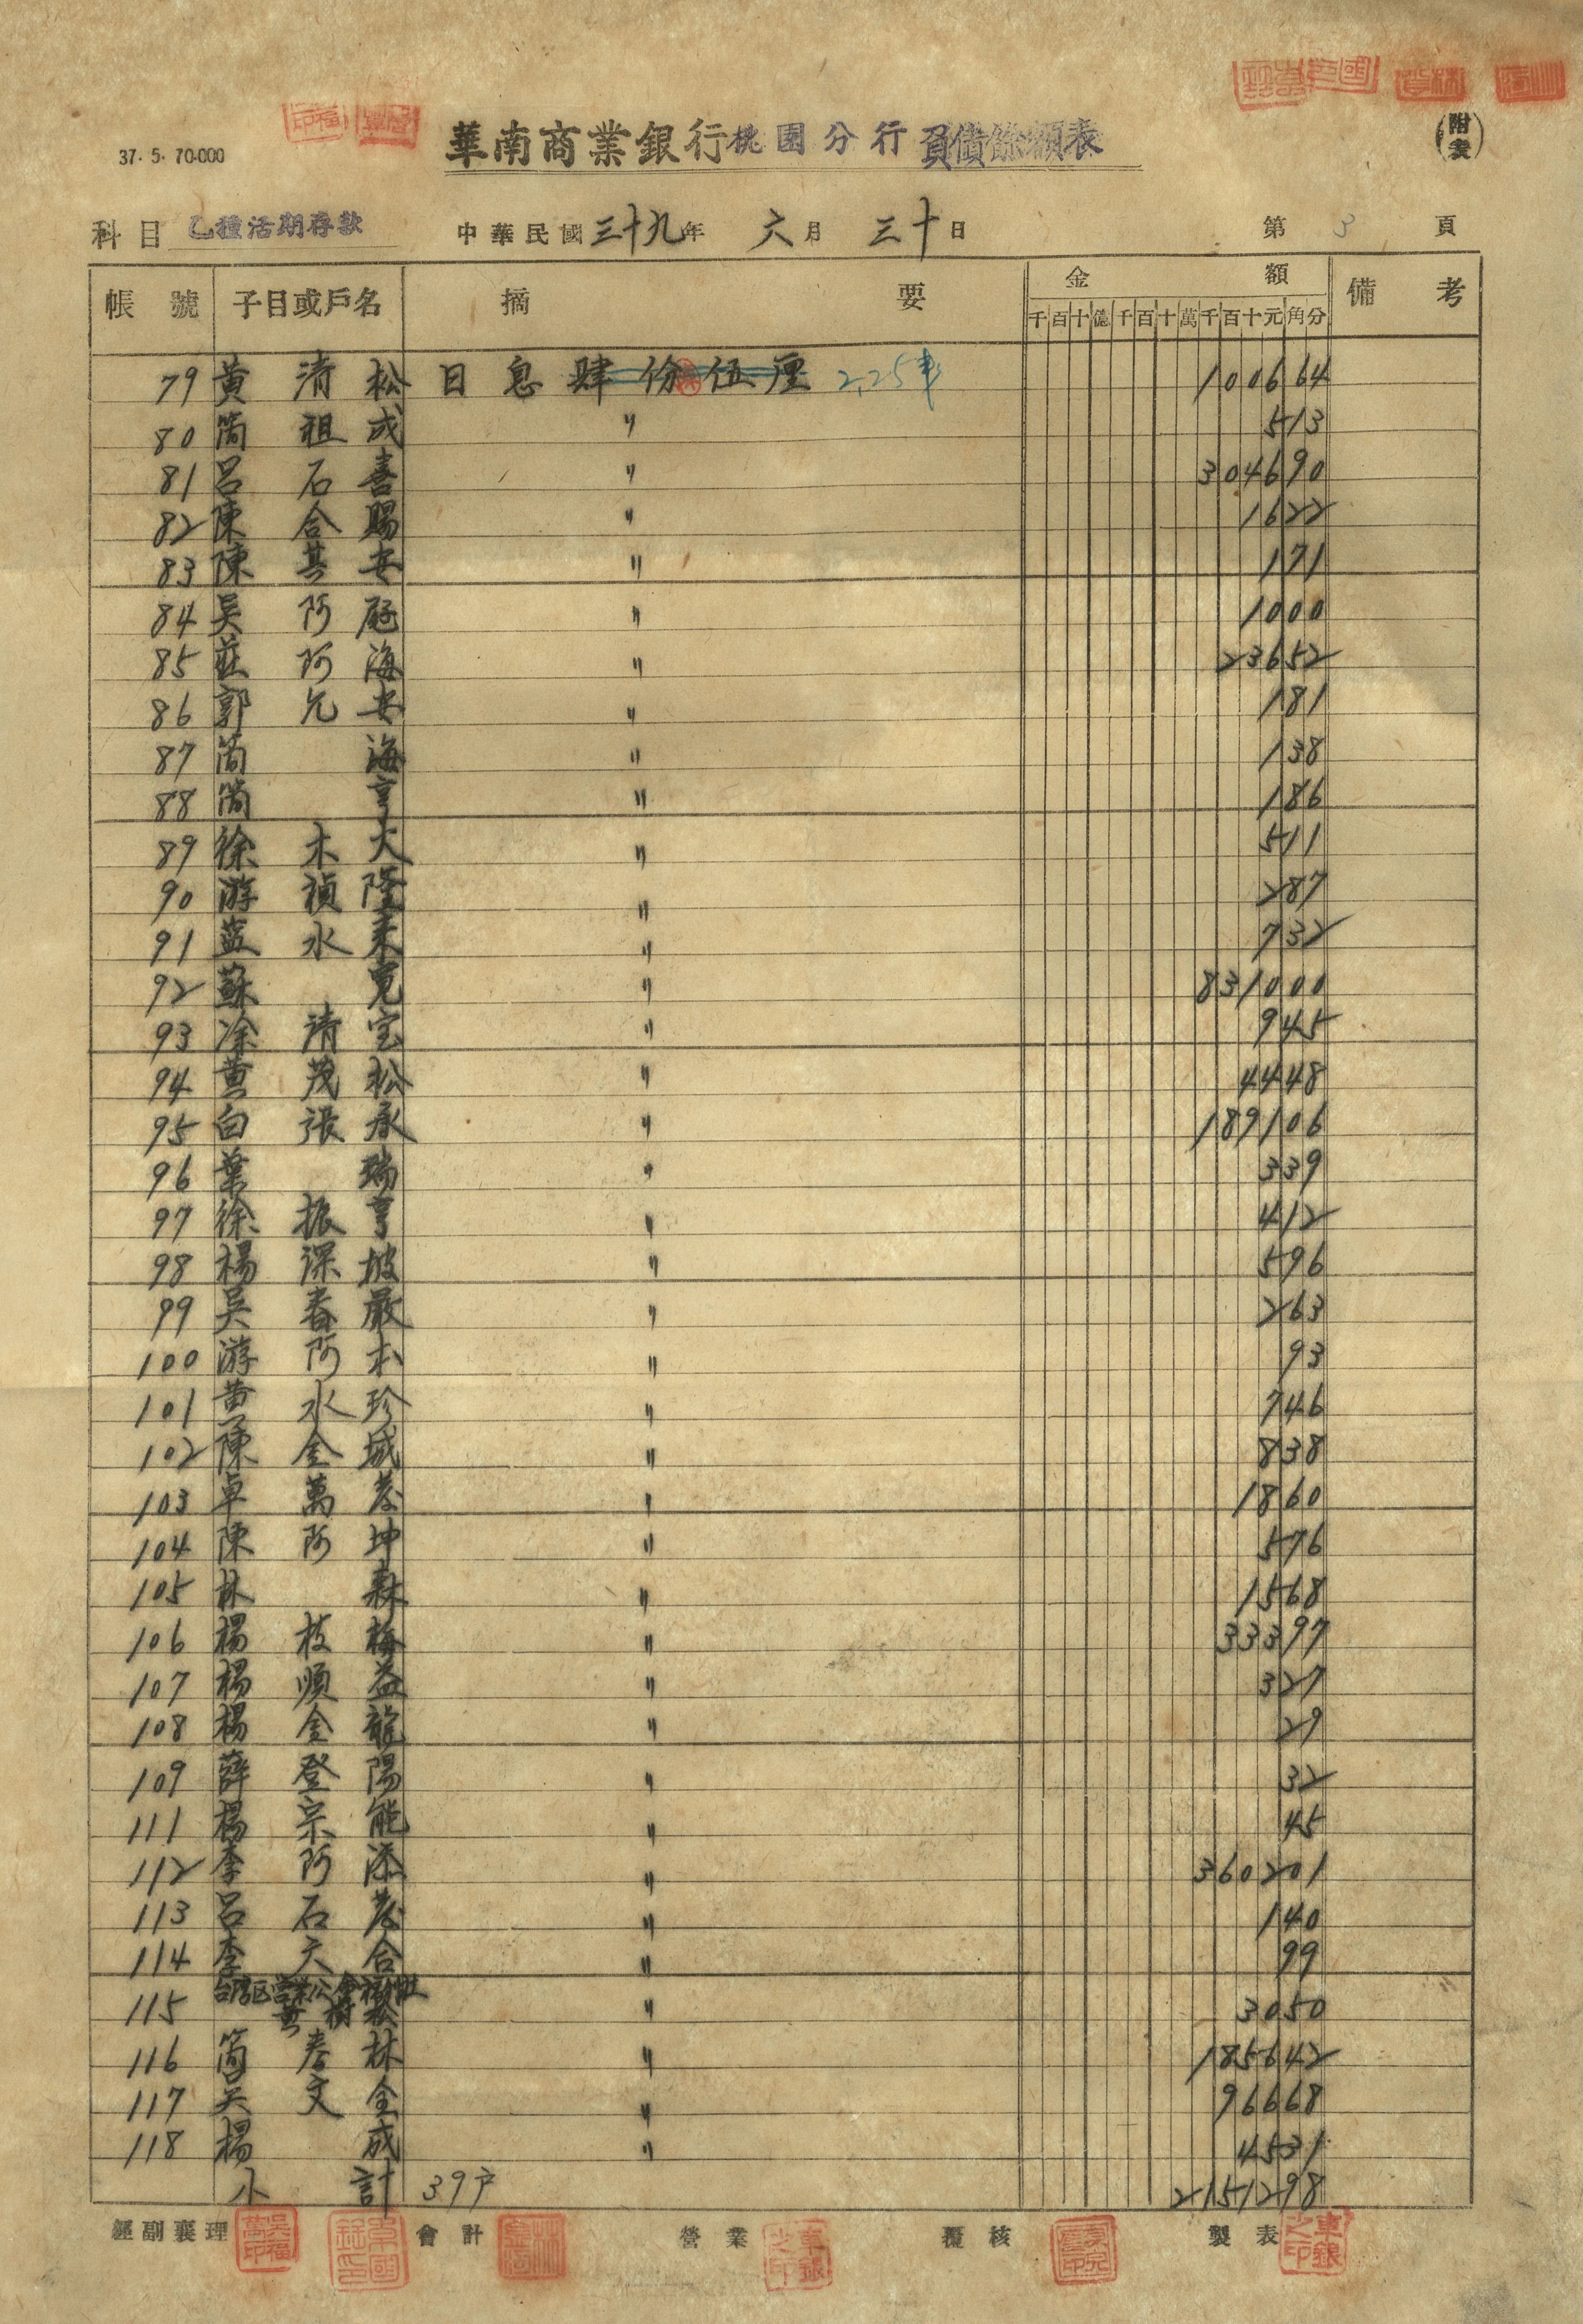 (附表)
37. 5. 70.000
華南商業銀行桃園分行負債餘額表
科目 乙種活期存款 中華民國三十九年 六月 三十日 第 3 頁
帳號 子目或戶名 摘要 金額 備考
千百十億千百十萬千百十元角分
79 黃清松 日息肆份伍厘 2.25 100664
80 簡祖成 〃 513
81 呂石善 〃 304690
82 陳合賜 〃 1622
83 陳其安 〃 171
84 吳阿 〃 1000
85 莊阿海 〃 23652
86 郭允安 〃 181
87 簡海 〃 138
88 簡亨 〃 186
89 徐木火 〃 511
90 游禎隆 〃 287
91 藍水來 〃 732
92 蘇寬 〃 831000
93 涂清宝 〃 945
94 黃茂松 〃 4448
95 白張承 〃 189106
96 葉瑞 〃 339
97 徐振亨 〃 412
98 楊深坡 〃 596
99 吳春嚴 〃 263
100 游阿木 〃 93
101 黃水珍 〃 746
102 陳金城 〃 838
103 卓萬 〃 1860
104 陳阿坤 〃 576
105 林森 〃 1568
106 楊枝梅 〃 33397
107 楊順益 〃 327
108 楊金龍 〃 29
109 薛登陽 〃 32
111 楊宗能 〃 45
112 李阿添 〃 360201
113 呂石 〃 140
114 李六合 〃 99
115 黃樹 〃 3050
116 簡春林 〃 185642
117 吳文全 〃 96668
118 楊成 〃 4531
小計 39戶 2151298
經副襄理 會計 營業 覆核 製表